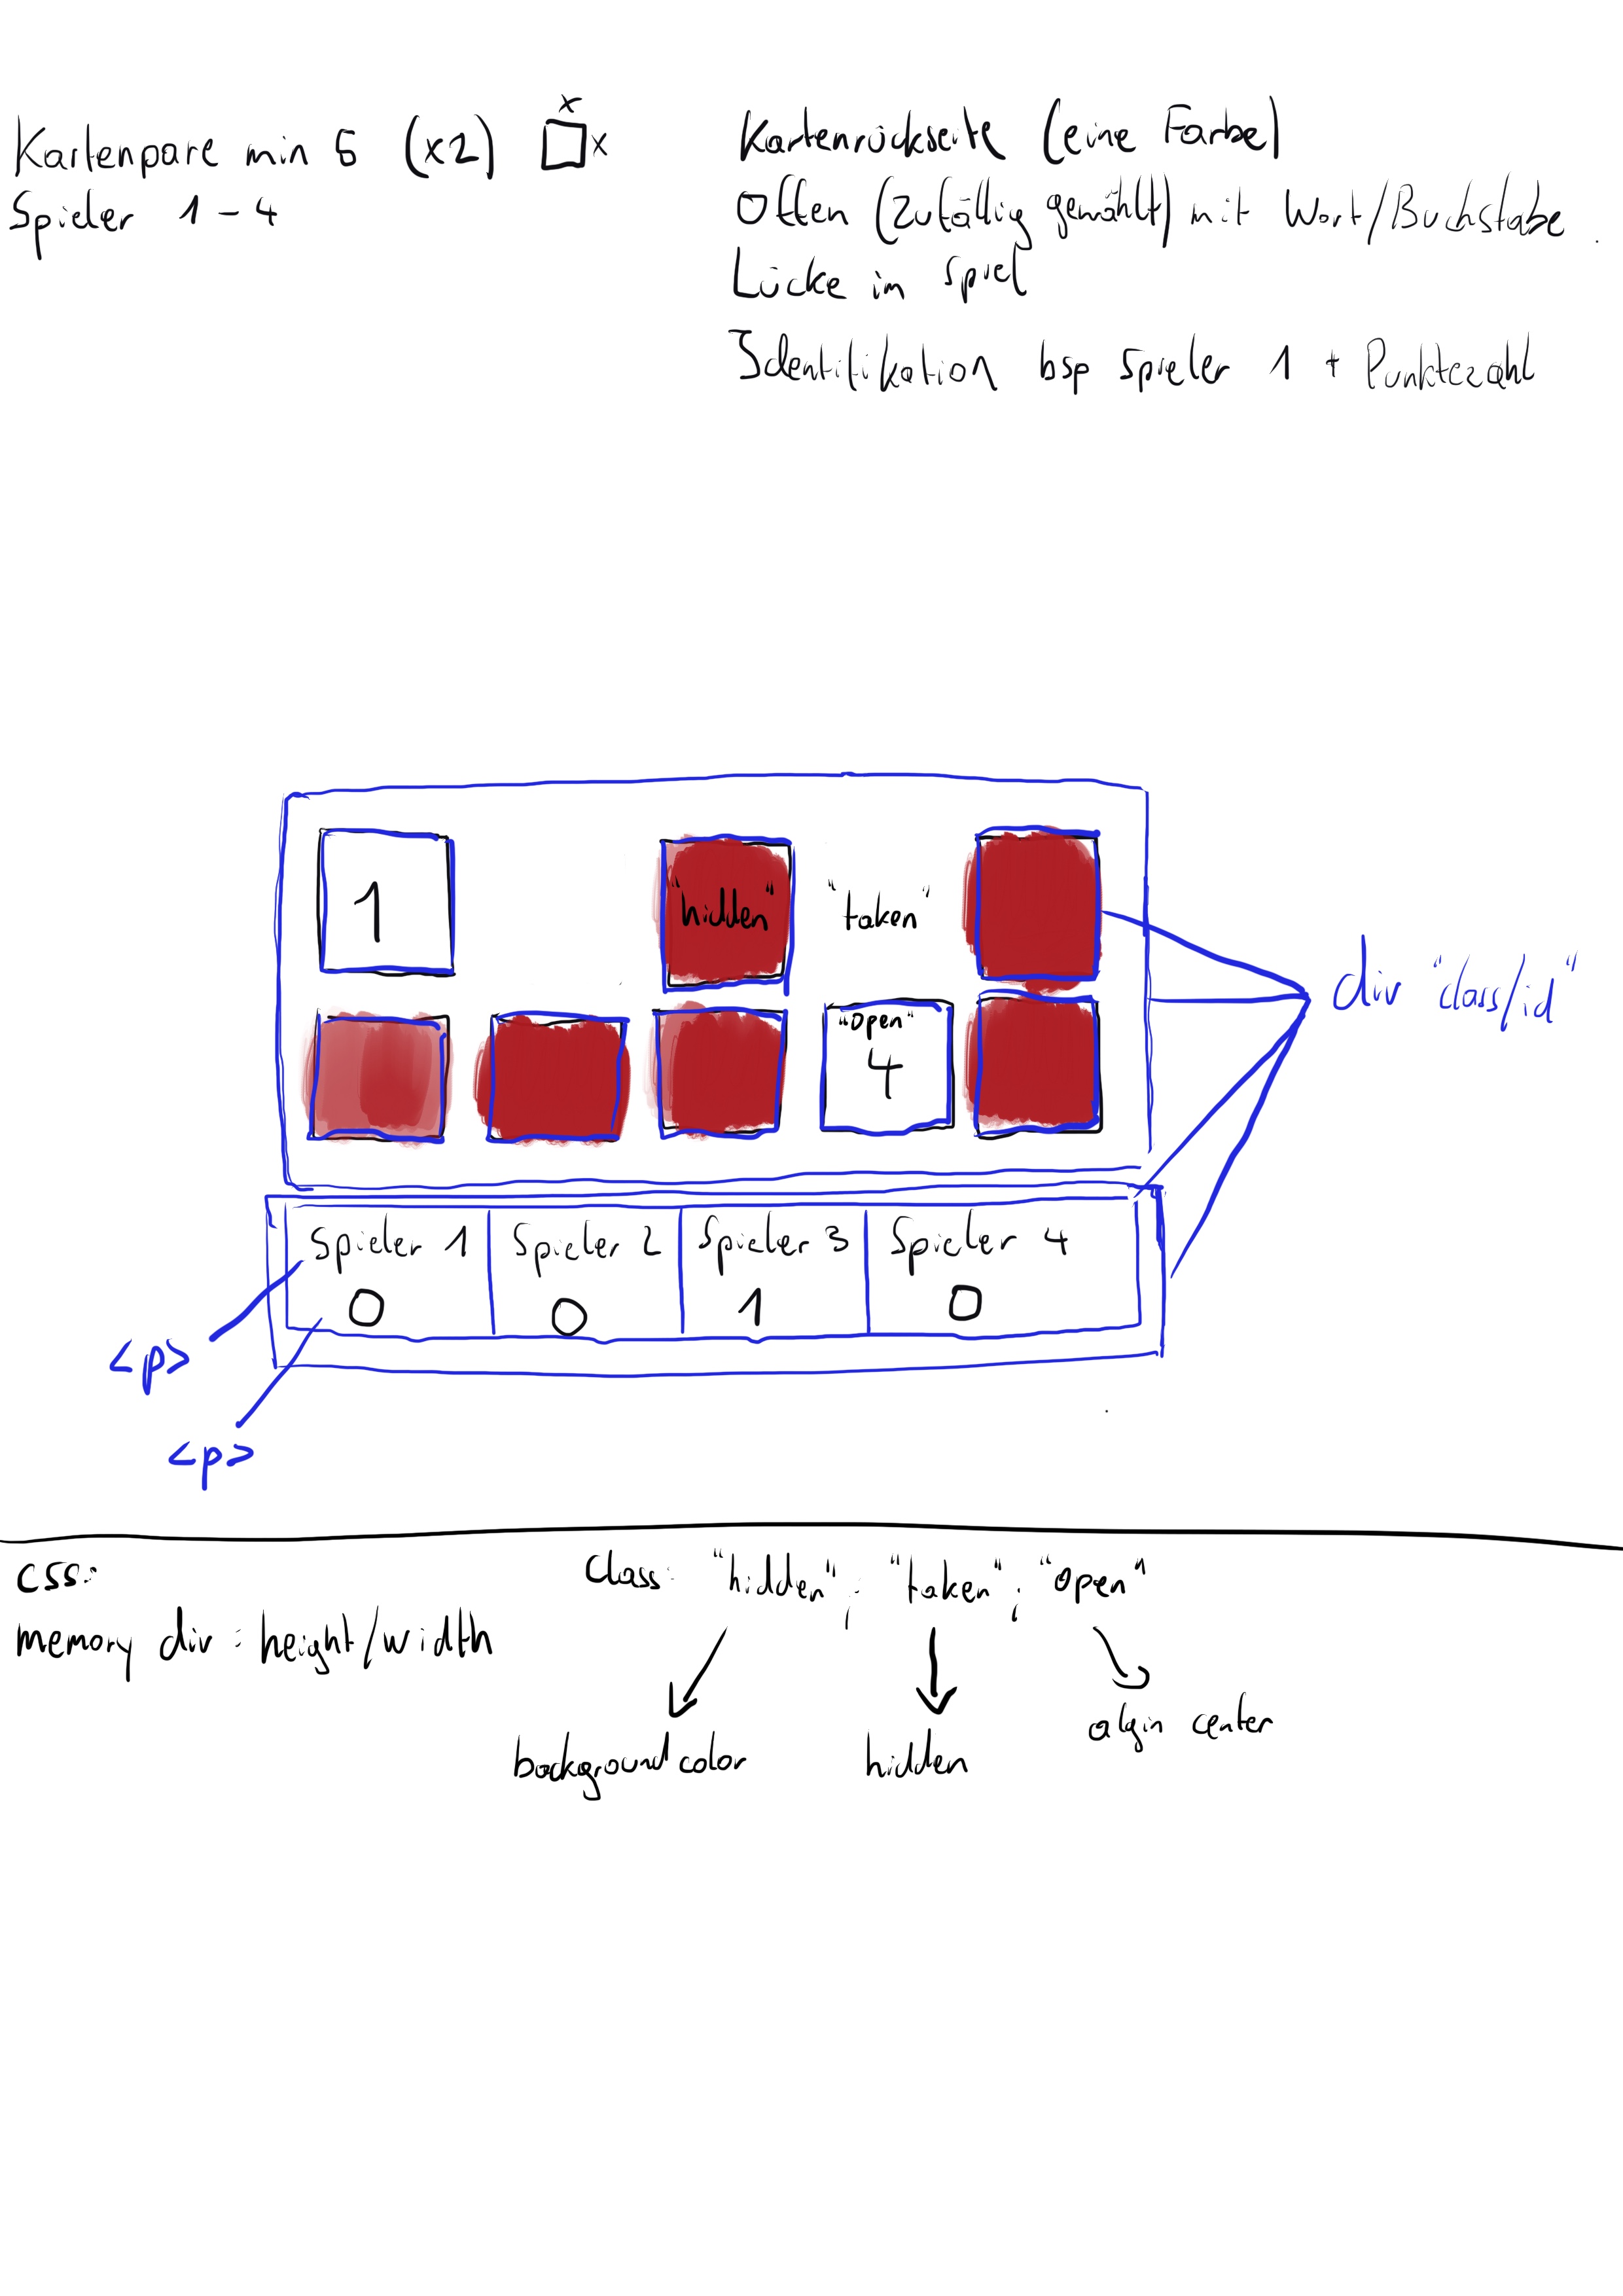 Kartenpare min 5 (x2) x x
Spieler 1 - 4
Kartenrückseite (eine Farbe)
Offen (zufällig gewählt) mit Wort/Buchstabe.
Lücke im Spiel
Identifikation bsp Spieler 1 + Punktezahl
1
"hidden"
"taken"
"open"
4
div "class/id"
Spieler 1 Spieler 2 Spieler 3 Spieler 4
0 0 1 0
<p>
<p>
CSS:
Class: "hidden"; "taken"; "open"
memory div: height/width
background color
hidden
algin center